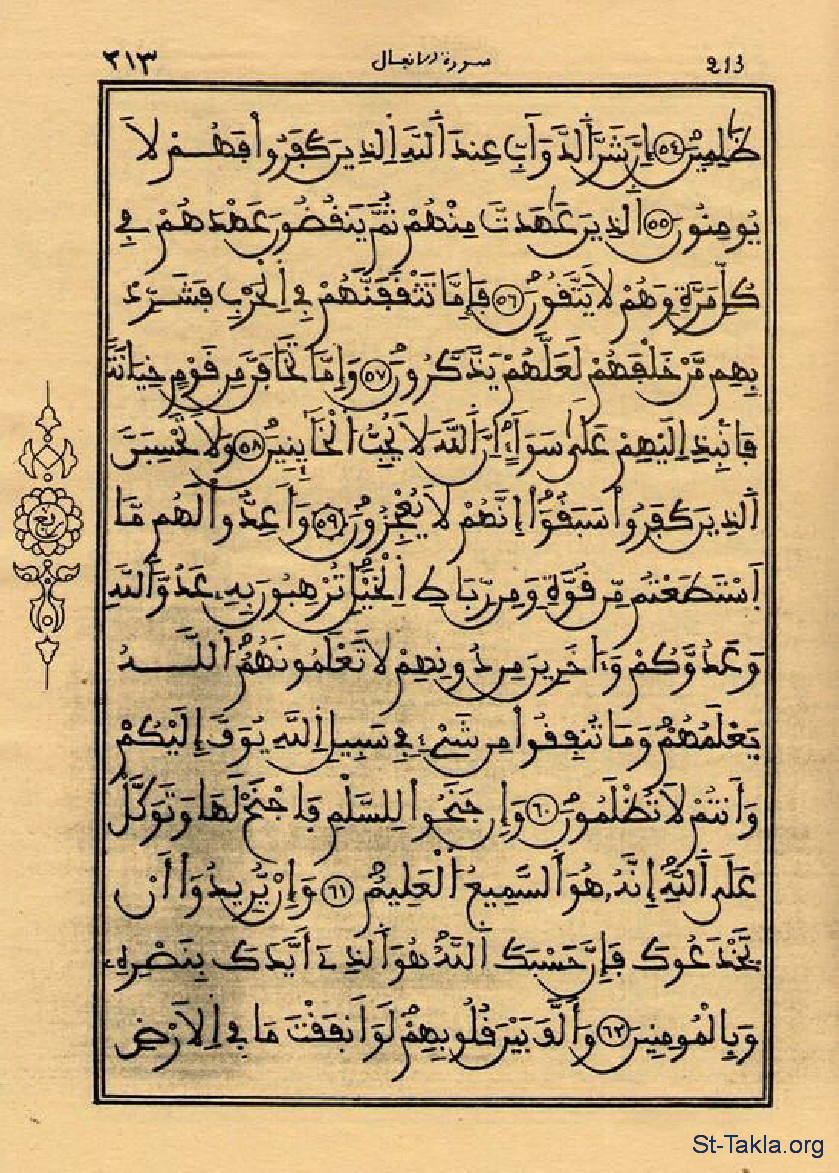 ٢١٣ سورة الانفال 213
ظَٰلِمِينَ ٥٤ إِنَّ شَرَّ اَلدَّوَآبِّ عِندَ اَللَّهِ اِلذِينَ كَفَرُواْ فَهُمْ لَا
يُومِنُونَ ٥٥ اَلذِينَ عَٰهَدتَّ مِنْهُمْ ثُمَّ يَنقُضُونَ عَهْدَهُمْ فِي
كُلِّ مَرَّةٍ وَهُمْ لَا يَتَّقُونَ ٥٦ فَإِمَّا تَثْقَفَنَّهُمْ فِي اِلْحَرْبِ فَشَرِّدْ
بِهِم مَّنْ خَلْفَهُمْ لَعَلَّهُمْ يَذَّكَّرُونَ ٥٧ وَإِمَّا تَخَافَنَّ مِن قَوْمٍ خِيَانَةً
فَانۢبِذِ اِلَيْهِمْ عَلَىٰ سَوَآءٍ اِنَّ اَللَّهَ لَا يُحِبُّ اُلْخَآئِنِينَ ٥٨ وَلَا تَحْسِبَنَّ
اَلذِينَ كَفَرُواْ سَبَقُوٓاْ إِنَّهُمْ لَا يُعْجِزُونَ ٥٩ وَأَعِدُّواْ لَهُم مَّا
اَسْتَطَعْتُم مِّن قُوَّةٍ وَمِن رِّبَاطِ اِلْخَيْلِ تُرْهِبُونَ بِهِۦ عَدُوَّ اَللَّهِ
وَعَدُوَّكُمْ وَءَاخَرِينَ مِن دُونِهِمْ لَا تَعْلَمُونَهُمُ اُللَّهُ
يَعْلَمُهُمْ وَمَا تُنفِقُواْ مِن شَےْءٍ فِي سَبِيلِ اِللَّهِ يُوَفَّ إِلَيْكُمْ
وَأَنتُمْ لَا تُظْلَمُونَ ٦٠ وَإِن جَنَحُواْ لِلسَّلْمِ فَاجْنَحْ لَهَا وَتَوَكَّلْ
عَلَى اَللَّهِ إِنَّهُۥ هُوَ اَلسَّمِيعُ اُلْعَلِيمُ ٦١ وَإِنْ يُّرِيدُوٓاْ أَنْ
يَّخْدَعُوكَ فَإِنَّ حَسْبَكَ اَللَّهُ هُوَ اَلذِےٓ أَيَّدَكَ بِنَصْرِهِۦ
وَبِالْمُومِنِينَ ٦٢ وَأَلَّفَ بَيْنَ قُلُوبِهِمْ لَوَ اَنفَقْتَ مَا فِي اِلَارْضِ
St-Takla.org